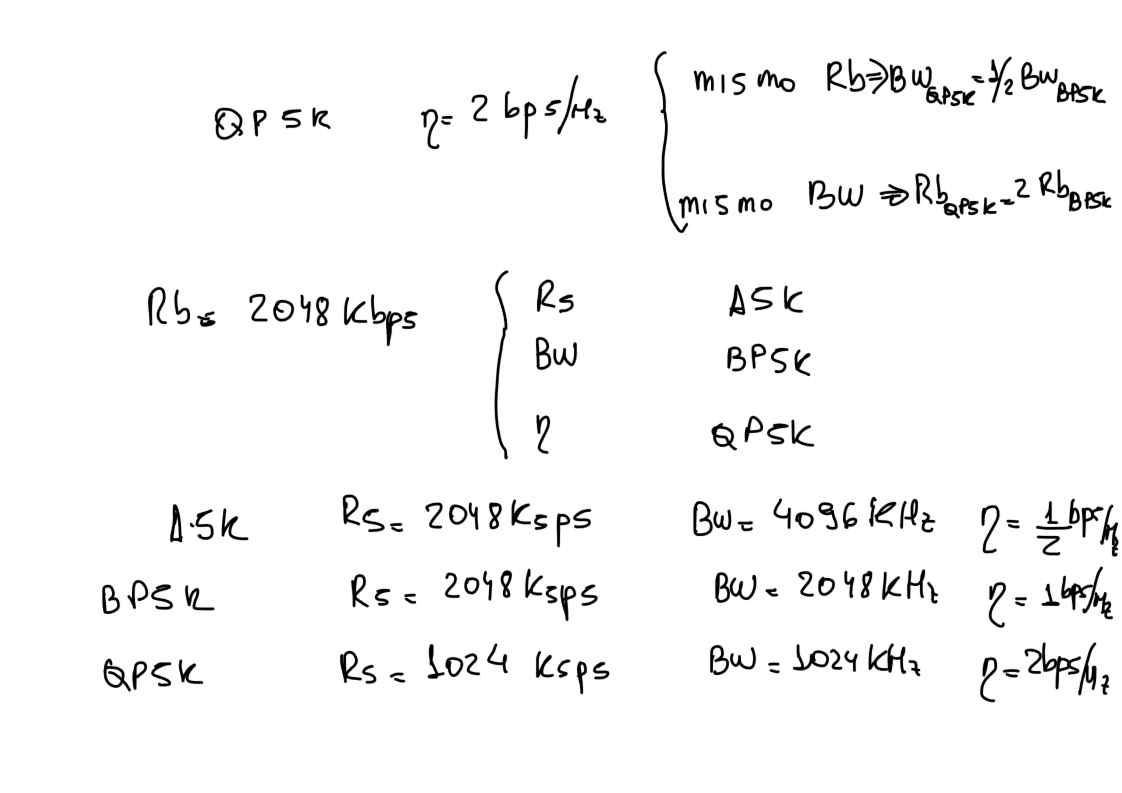 mismo Rb⇒BW QPSK = 1/2 BW BPSK
QPSK η= 2 bps/Hz
mismo BW ⇒ Rb QPSK = 2 Rb BPSK
Rb= 2048 Kbps
Rs ASK
BW BPSK
η QPSK
ASK Rs= 2048 Ksps BW= 4096 KHz η= 1/2 bps/Hz
BPSK Rs= 2048 Ksps BW= 2048 KHz η= 1 bps/Hz
QPSK Rs= 1024 Ksps BW= 1024 KHz η= 2bps/Hz